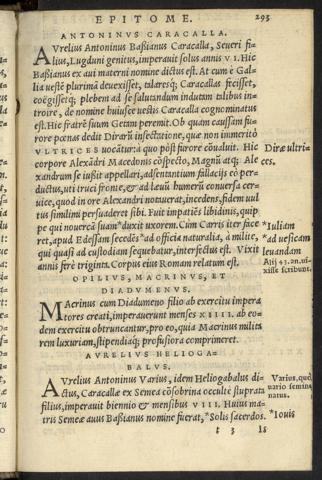 EPITOME. 293
ANTONINVS CARACALLA.
AVrelius Antoninus Baßianus Caracalla, Seueri fi-
lius, Lugduni genitus, imperauit solus annis VI. Hic
Baßianus ex aui materni nomine dictus est. At cum è Gal-
lia uestē plurimā deuexisset, talaresq́; Caracallas fecisset,
coëgissetq́; plebem ad se salutandum indutam talibus in-
troire, de nomine huiusce uestis Caracalla cognominatus
est. Hic fratrē suum Getam peremit. Ob quam caussam fu-
rore pœnas dedit Dirarū insectatione, quæ non immeritò
VLTRICES uocātur: à quo pòst furore cōualuit. Hic
corpore Alexādri Macedonis cōspecto, Magnū atq; Ale
xandrum se iußit appellari, adsentantium fallacijs eò per-
ductus, uti truci fronte, & ad læuū humerū conuersa cer-
uice, quod in ore Alexandri notauerat, incedens, fidem uul
tus simillimi persuaderet sibi. Fuit impatiēs libidinis, quip
pe qui nouercā suam *duxit uxorem. Cum Carris iter face
ret, apud Edessam secedēs *ad officia naturalia, à milite,
qui quasi ad custodiam sequebatur, interfectus est. Vixit
annis ferè triginta. Corpus eius Romam relatum est.
Diræ ultri-
ces.
*Iuliam
*ad uesicam
leuandam
Alij 43. an. ui-
xisse scribunt.
OPILIVS, MACRINVS, ET
DIADVMENVS.
MAcrinus cum Diadumeno filio ab exercitu impera
tores creati, imperauerunt menses XIIII. ab eo-
dem exercitu obtruncantur, pro eo, quia Macrinus milita
rem luxuriam, stipendiaq́; profusiora comprimeret.
AVRELIVS HELIOGA-
BALVS.
AVrelius Antoninus Varius, idem Heliogabalus di-
ctus, Caracallæ ex Semea cōsobrina occultè stuprata
filius, imperauit biennio & mensibus VIII. Huius ma-
tris Semeæ auus Baßianus nomine fuerat, *Solis sacerdos.
Varius, quòd
uario semine
natus.
*Iouis
t 3 Is